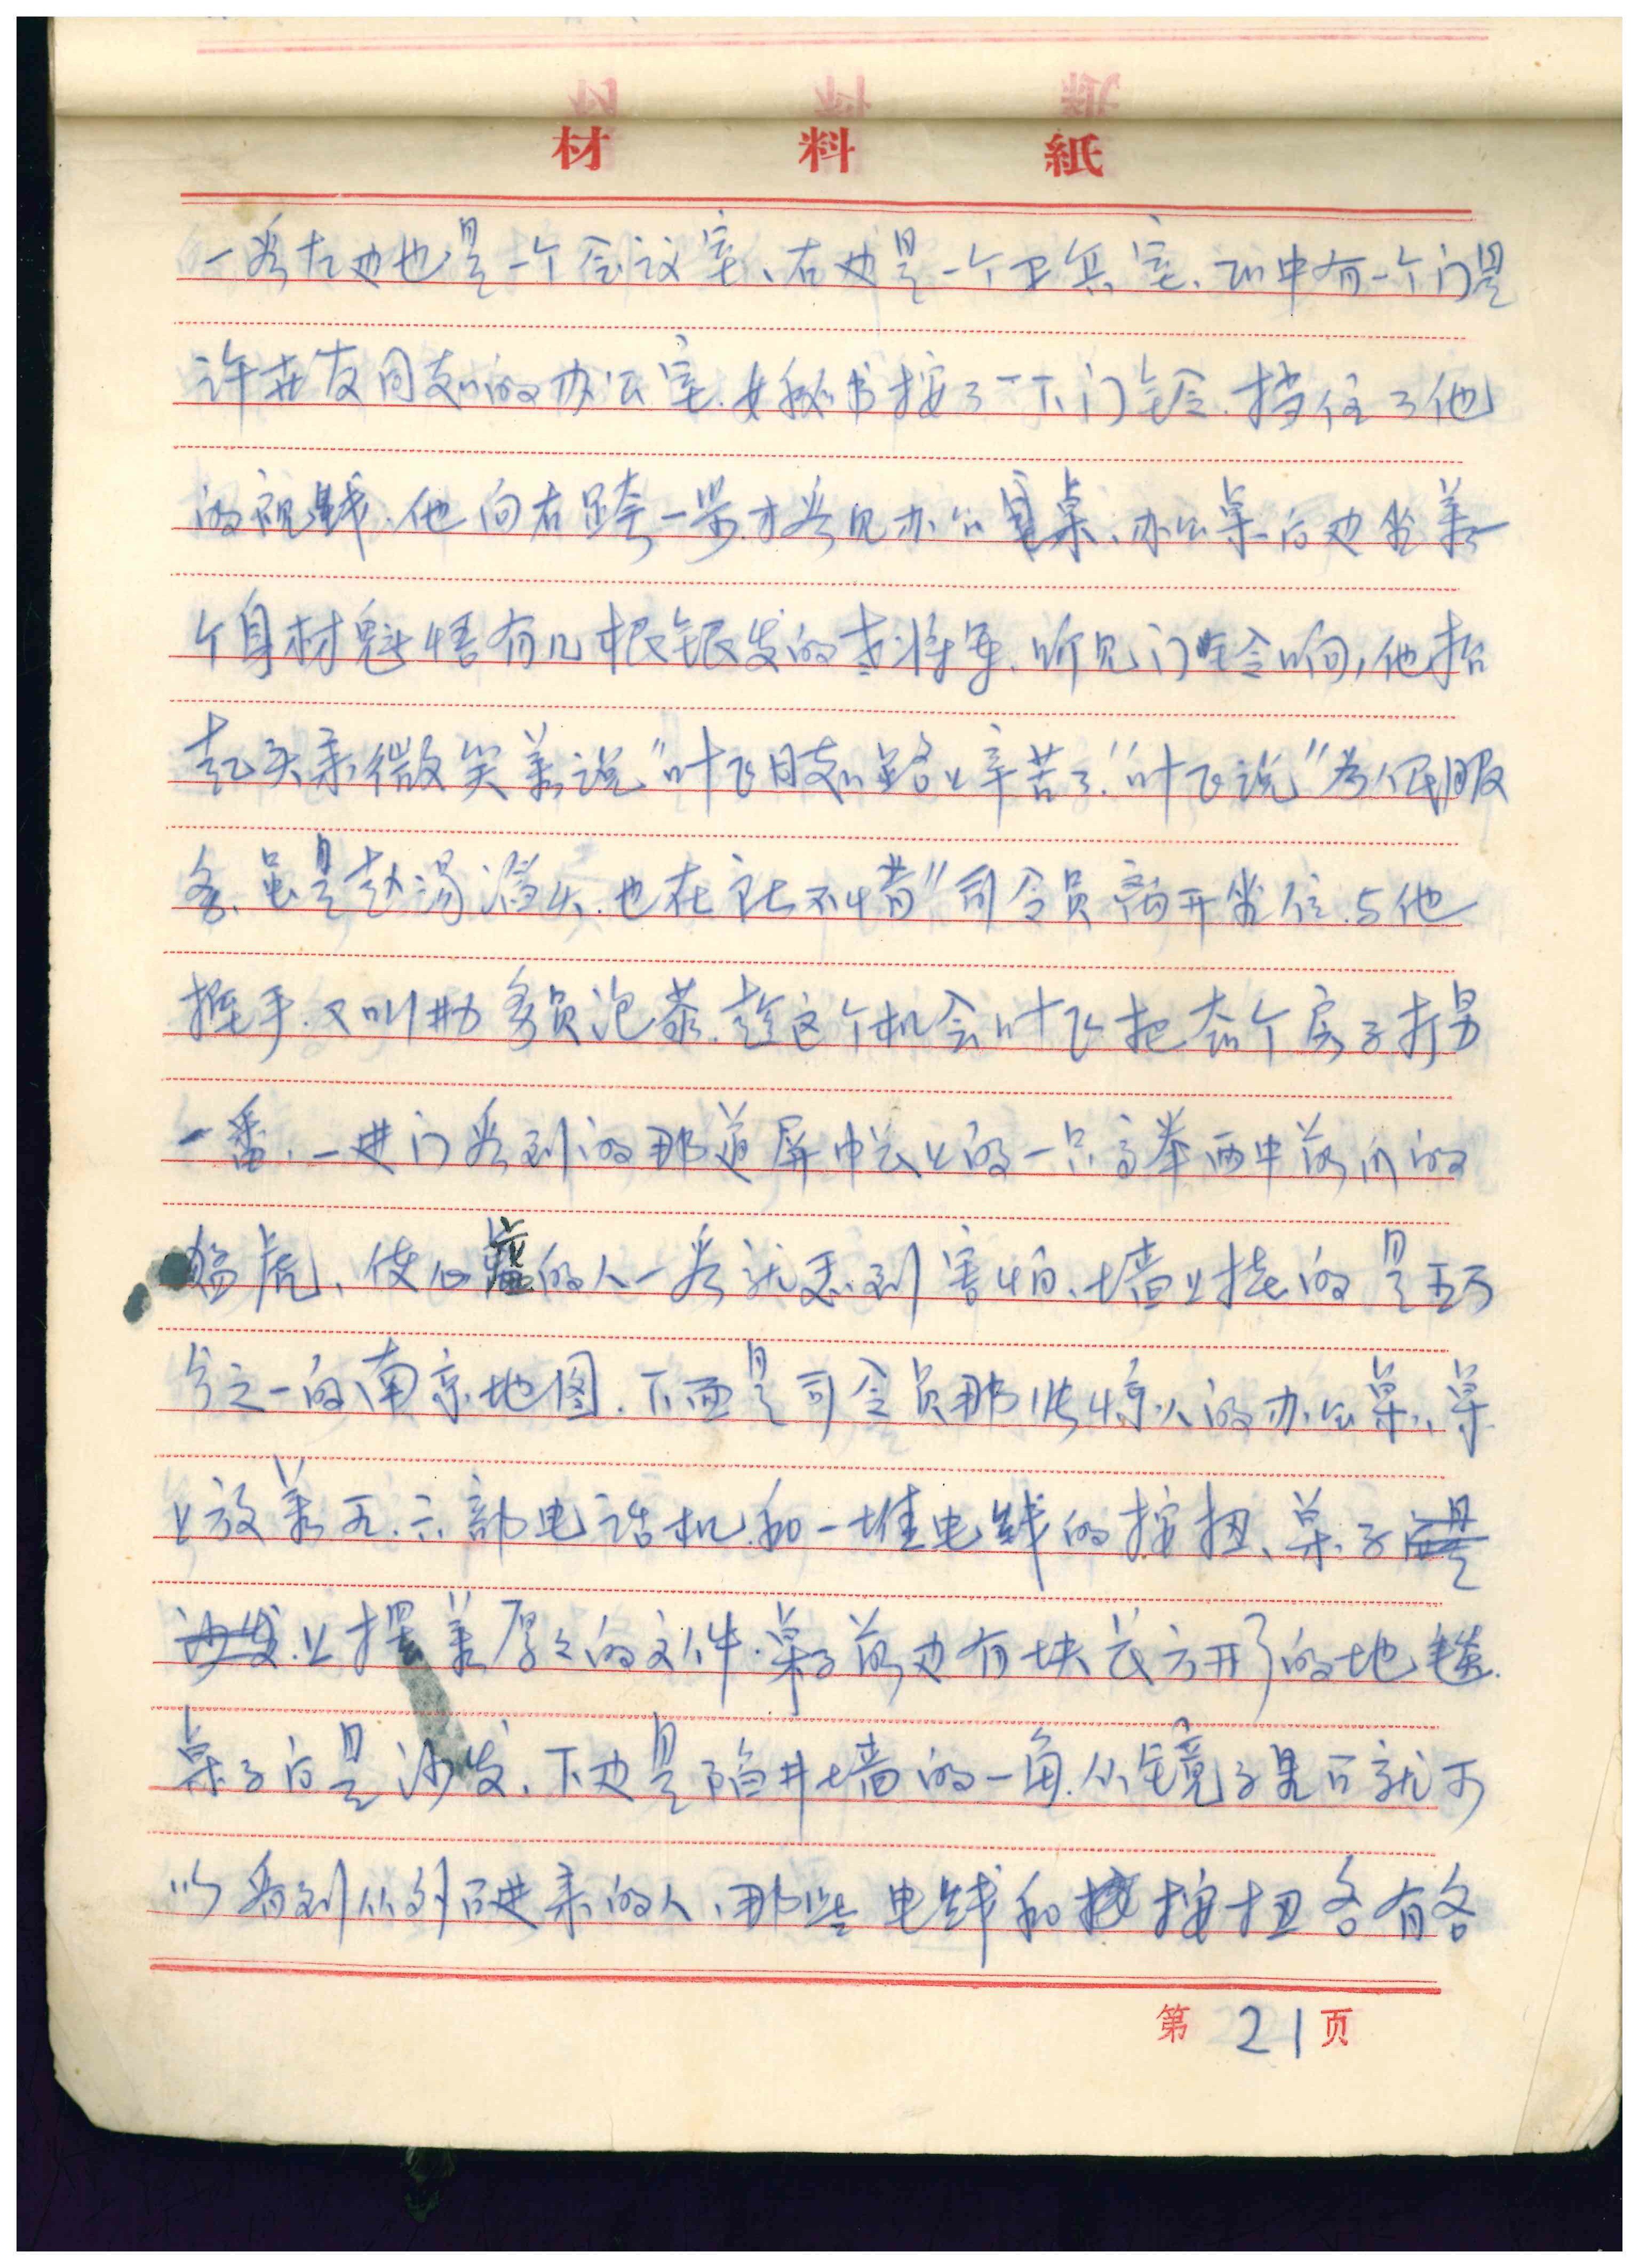 材料紙
一看左边也是一个会议室、右边是一个卫兵室、正中有一个门是
许世友同志的办公室.女秘书按了一下门铃.挡住了他
的视线.他向右跨一步.才看见办公桌、办公桌后边坐着一
个身材魁悟有几根银发的老将军.听见门铃响,他抬
起头来微笑着说"叶飞同志路上辛苦了."叶飞说"为人民服
务、虽是赴汤蹈火.也在所不惜"司令员离开坐位.与他
握手.又叫勤务员泡茶.趁这个机会叶飞把整个房子打量
一番.一进门看到的那道屏中上的一只高举两只前爪的
猛虎、使心虚的人一看就感到害怕、墙上挂的是五万
分之一的南京地图.下面是司令员那张惊人的办公桌、桌
上放着五.六部电话机.和一堆电线的按扭、桌子
上摆着厚之的文件.桌子前边有块长方形的地毯.
桌子后是沙发.下边是陷井墙的一角.从镜子里只就可
以看到从外面进来的人、那些电线和按扭各有各
第21页